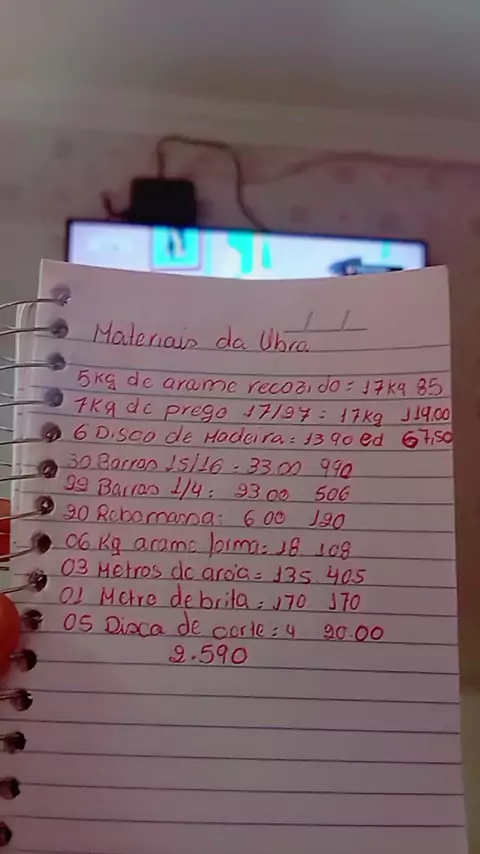 Materiais da Obra / /
5kg de arame recozido = 17kg 85
7kg de prego 17/27 = 17kg 119,00
6 Disco de Madeira = 13 90 ed 67,50
30 Barras 15/16 = 33.00 990
22 Barras 1/4 = 23 00 506
20 Rebomassa = 6 00 120
06 Kg arame forma = 18 108
03 Metros de aroia = 135 405
01 Metro de brita = 170 170
05 Disca de corte = 4 20.00
2.590